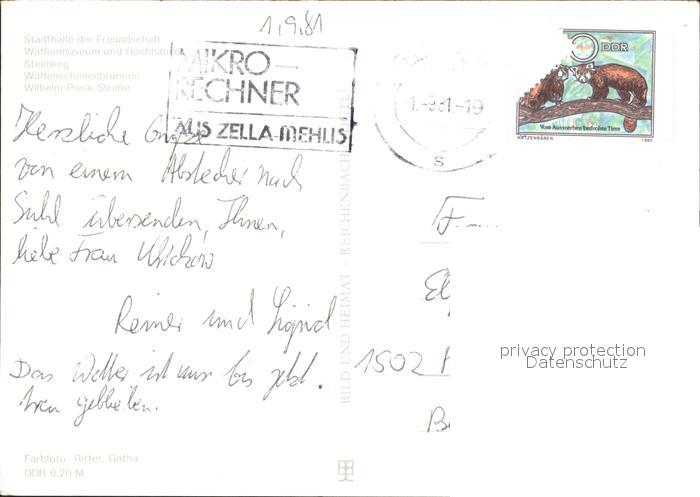 1.9.81
Stadthalle der Freundschaft
Waffenmuseum und Hochhäuser
Steinweg
Waffenschmiedbrunnen
Wilhelm-Pieck-Straße
MIKRO-
RECHNER
AUS ZELLA-MEHLIS
1.-9.81-19
S
DDR
Vom Aussterben bedrohte Tiere
KATZENBÄREN 1980
Herzliche Grüße
von einem Abstecher nach
Suhl übersenden, Ihnen,
liebe Frau
Reiner und Sigrid
Das Wetter ist uns bis jetzt
treu geblieben.
BILD UND HEIMAT · REICHENBACH
F
El
1502
B
privacy protection
Datenschutz
Farbfoto: Ritter, Gotha
DDR 0,20 M